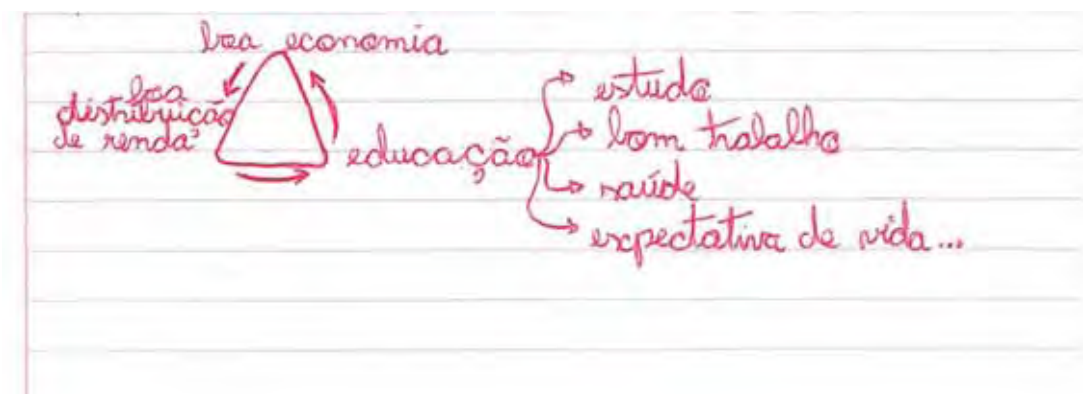 boa economia
boa
distribuição
de renda
educação
estudo
bom trabalho
saúde
expectativa de vida...